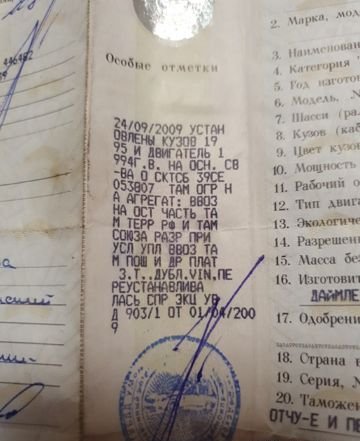 446482
Особые отметки
24/09/2009 УСТАН
ОВЛЕНЫ КУЗОВ 19
95 И ДВИГАТЕЛЬ 1
994Г.В. НА ОСН. СВ
-ВА О СКТСБ 39СЕ
053807 ТАМ ОГР Н
А АГРЕГАТ: ВВОЗ
НА ОСТ ЧАСТЬ ТА
М ТЕРР РФ И ТАМ
СОЮЗА РАЗР ПРИ
УСЛ УПЛ ВВОЗ ТА
М ПОШ И ДР ПЛАТ
З.Т..ДУБЛ.VIN,ПЕ
РЕУСТАНАВЛИВА
ЛАСЬ СПР ЭКЦ УВ
Д 903/1 ОТ 01/04/200
9
2. Марка, мод
3. Наименован
4. Категория
5. Год изгото
6. Модель, №
7. Шасси (ра
8. Кузов (ка
9. Цвет кузо
10. Мощность
11. Рабочий о
12. Тип двига
13. Экологиче
14. Разрешен
15. Масса без
16. Изготовит
ДАЙМЛЕ
17. Одобрени
18. Страна в
19. Серия, №
20. Таможен
ОТЧУ-Е И П